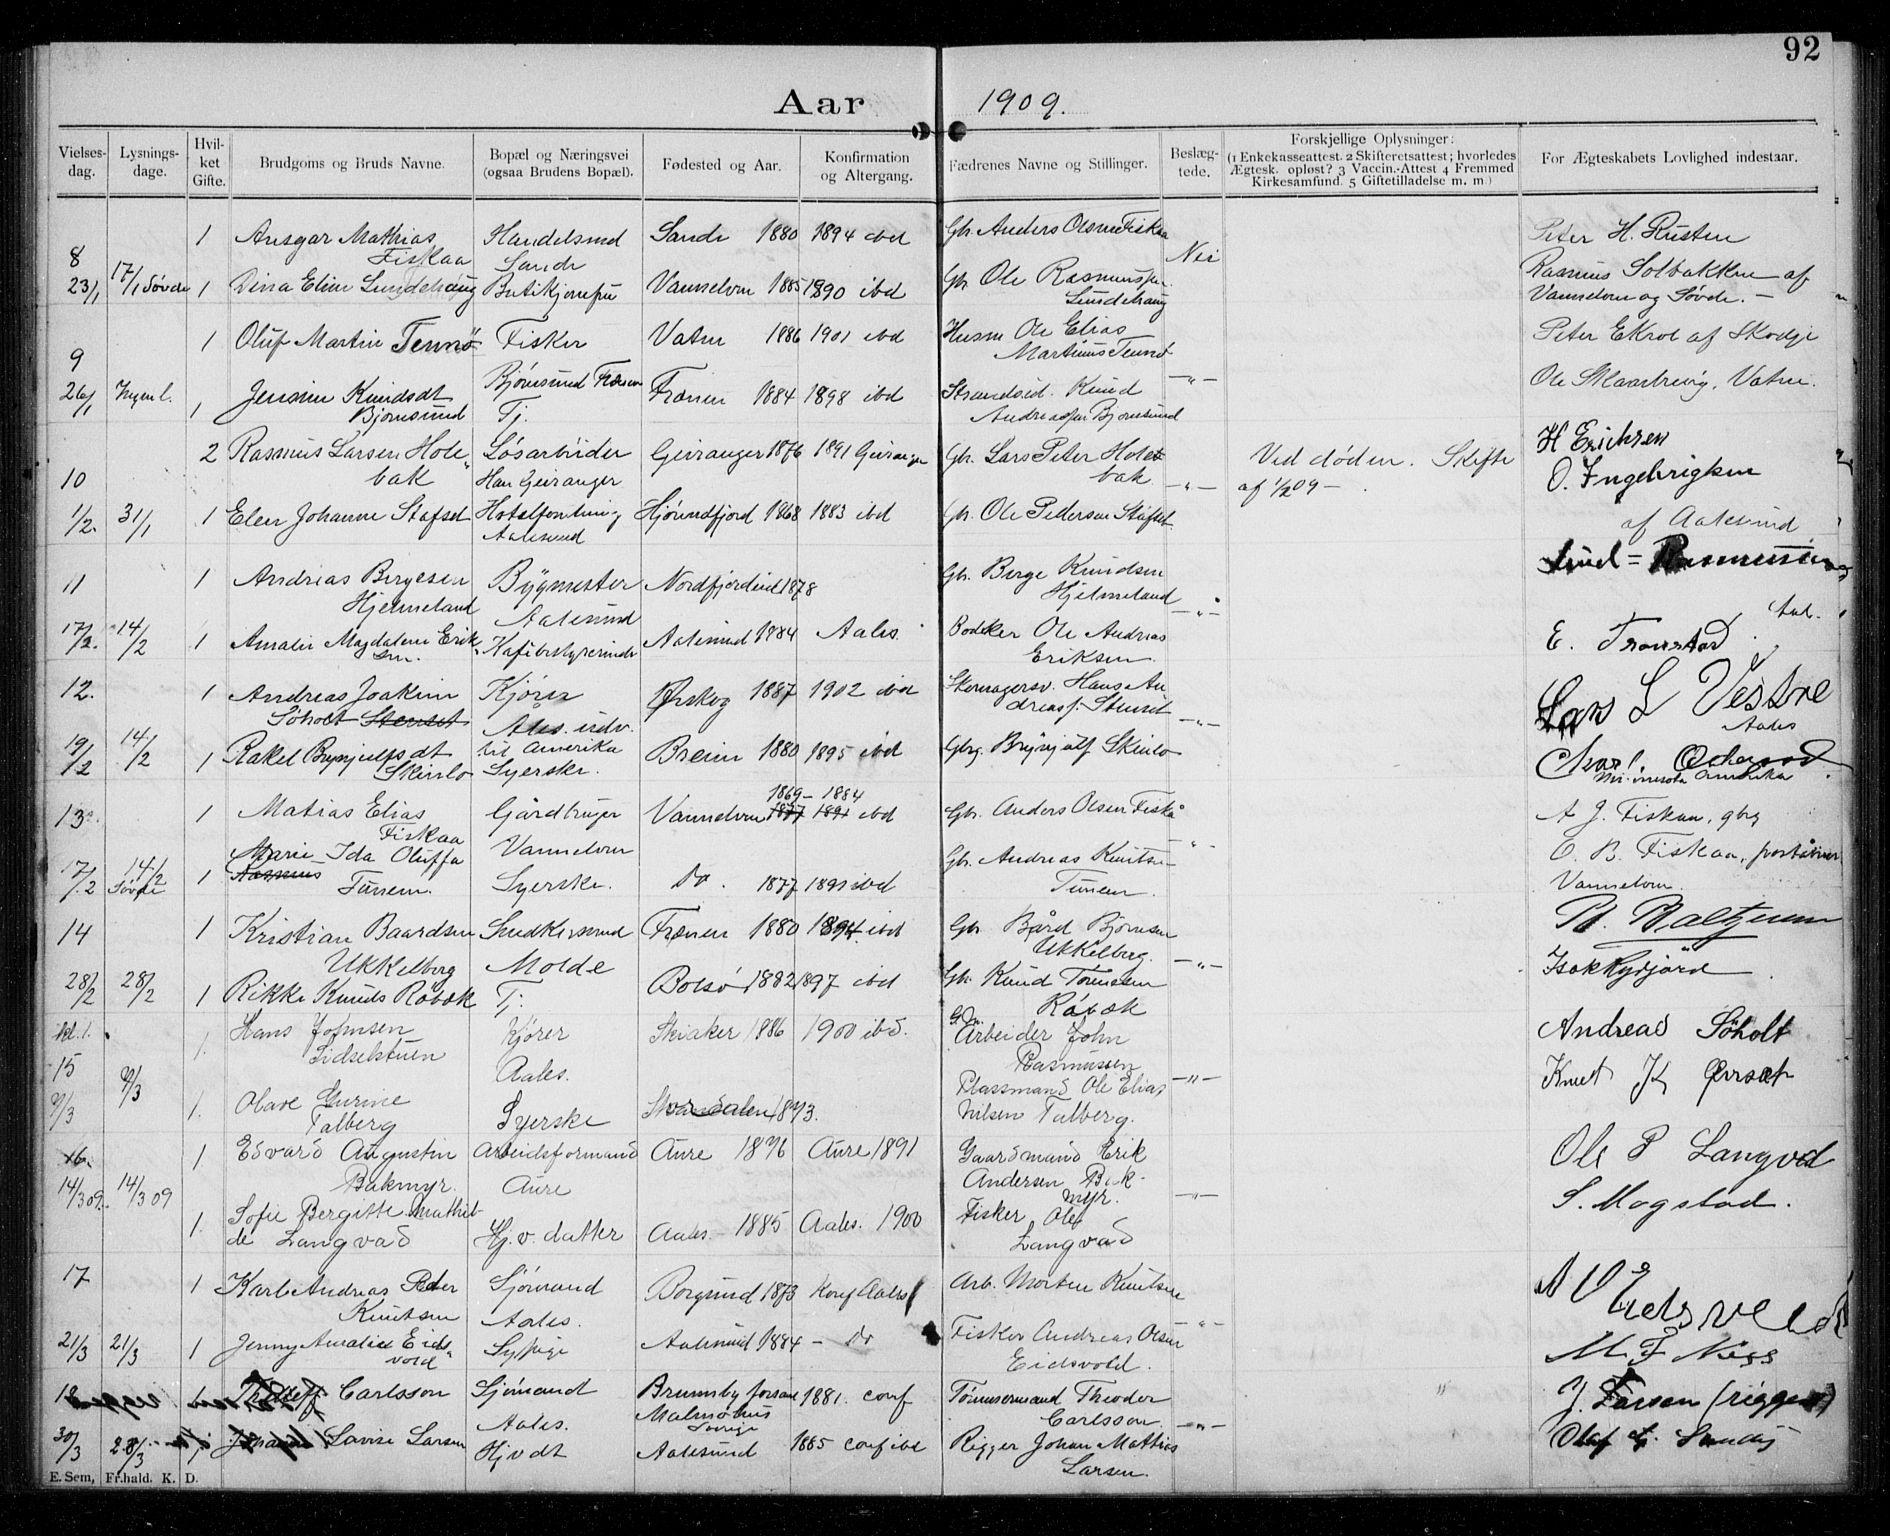 92
Aar 1909.
Vielses-dag. Lysnings-dage. Hvil-ket Gifte. Brudgoms og Bruds Navne. Bopæl og Næringsvei (ogsaa Brudens Bopæl). Fødested og Aar. Konfirmation og Altergang. Fædrenes Navne og Stillinger. Beslæg-tede. Forskjellige Oplysninger: (1 Enkekasseattest. 2 Skifteretsattest; hvorledes Ægtesk. opløst? 3 Vaccin.-Attest 4 Fremmed Kirkesamfund. 5 Giftetilladelse m. m.) For Ægteskabets Lovlighed indestaar.
8 1 Ansgar Mathias Handelsmd Sande 1880 1894 ibd Gbr. Anders Olsen Fiskaa Nei Peter H. Rusten
Fiskaa Sande
23/1 17/1 Søvde 1 Dina Eline Lundehaug Butikjomfru Vannelven 1885 1890 ibd Gbr. Ole Rasmussen Rasmus Solbakken af
Lundehaug Vannelven og Søvde. —
9 1 Oluf Martin Tennø Fisker Vatne 1886 1901 ibd Husm Ole Elias Peter Ekroe af Skodje
Martinus Tennø
26/1 Ingen l. 1 Jensine Knudsdt Bjørnsund Frænen Frænen 1884 1898 ibd Strandsid. Knud —"— Ole Skaarbrevig, Vatne.
Bjørnsund Tj. Andreassen Bjørnsund
10 2 Rasmus Larsen Hole Løsarbeider Geiranger 1876 1891 Geiranger Gbr. Lars Peter Hole Ved døden. Skifte H Erichsen
bak Han Geiranger bak —"— af 1/2 09 — O. Ingebrigtsen
1/2. 31/1 1 Elen Johanne Stafset Hotelforretning Hjørundfjord 1868 1883 ibd Gbr. Ole Pedersen Stafset af Aalesund
Aalesund
11 1 Andreas Bergesen Bygmester Nordfjordeid 1878 Gbr. Berge Knudsen Rasmussen
Hjelmeland Aalesund Hjelmeland —"—
17/2. 14/2 1 Amalie Magdalene Erik Kafébestyrerinde Aalesund 1884 Aales. Bødker Ole Andreas E. Tronstad. Aal.
sen. Eriksen.
12. 1 Andreas Joakim Kjører Ørskog 1887 1902 ibd Skomagersv. Hans An Lars L Vestre
Søholt Stenset Ales. udv. dreas f. Stenset —"— Aales
19/2 14/2 1 Rakel Brynjulfsdt til Amerika Breim 1880 1895 ibd Gbrg. Brynjulf Skinlo
Skinlo Syerske. Minnesota Amerika
13. 1 Matias Elias Gårdbruger Vannelven 1869 – 1884 1877 1891 ibd Gbr. Anders Olsen Fiskå A J. Fiskaa, gbrg
Fiskaa Vannelven —"— O. B. Fiskaa, poståbner
17/2 14/2 Søvde 1 Marie Ida Oluffa Syerske. do. 1877 1891 ibd Gbr. Andreas Knutsen Vannelven.
Rasmus Tunem. Tunem
14 1 Kristian Baardsen Smedkersvend Frænen 1880 1894 ibd Gbr. Bård Bjørnsen
Ukkelberg Molde Ukkelberg. —"—
28/2 28/2 1 Rikke Knuds Røbæk Tj. Bolsø 1882 1897 ibd Gbr. Knud Tønnesen
Røbæk
kl. 1. 1. Hans Johnsen Kjører Skiaker 1886 1900 ibd. Arbeider John Andreas Søholt
15 Lidselstuen Aales. Rasmussen
9/3 9/3 1. Olave Gurine Syerske 1873. Plassmand Ole Elias —"— Knut K Ørrsæt
Talberg Nilsen Talberg.
16. 1 Edvard Augustin Arbeidsformand Aure 1876 Aure 1891 Gaardmand Erik Ole P Langvad
Bakmyr. Aure Andersen Bak-
14/3 09. 14/3 09 myr. —"— S. Mogstad.
1. Sofie Bergitte Mathil- Hj. v. datter Aales. 1885 Aales. 1900 Fisker Ole
de Langvad Langvad
17 1 Karl Andreas Peder Sjømand Borgund 1873 Konf Aales Arb. Morten Knutsen A O Eidsvold
Knutsen Aales.
21/3 21/3 1 Jenny Amalie Eids- Sypige Aalesund 1884 – do Fisker Andreas Olsen —"— M. F. Ness
vold Eidsvold.
18 1 Carlsson Sjømand 1881. conf Tømmermand Theodor J. Larsen (rigger)
Aales. Malmøhus Sverige Carlsson. —"—
30/3 28/3 1 Johanne Lovise Larsen Hjv dt Aalesund 1885 conf ibd Rigger Johan Mathias Olaf
Larsen.
E. Sem, Fr.hald. K. D.